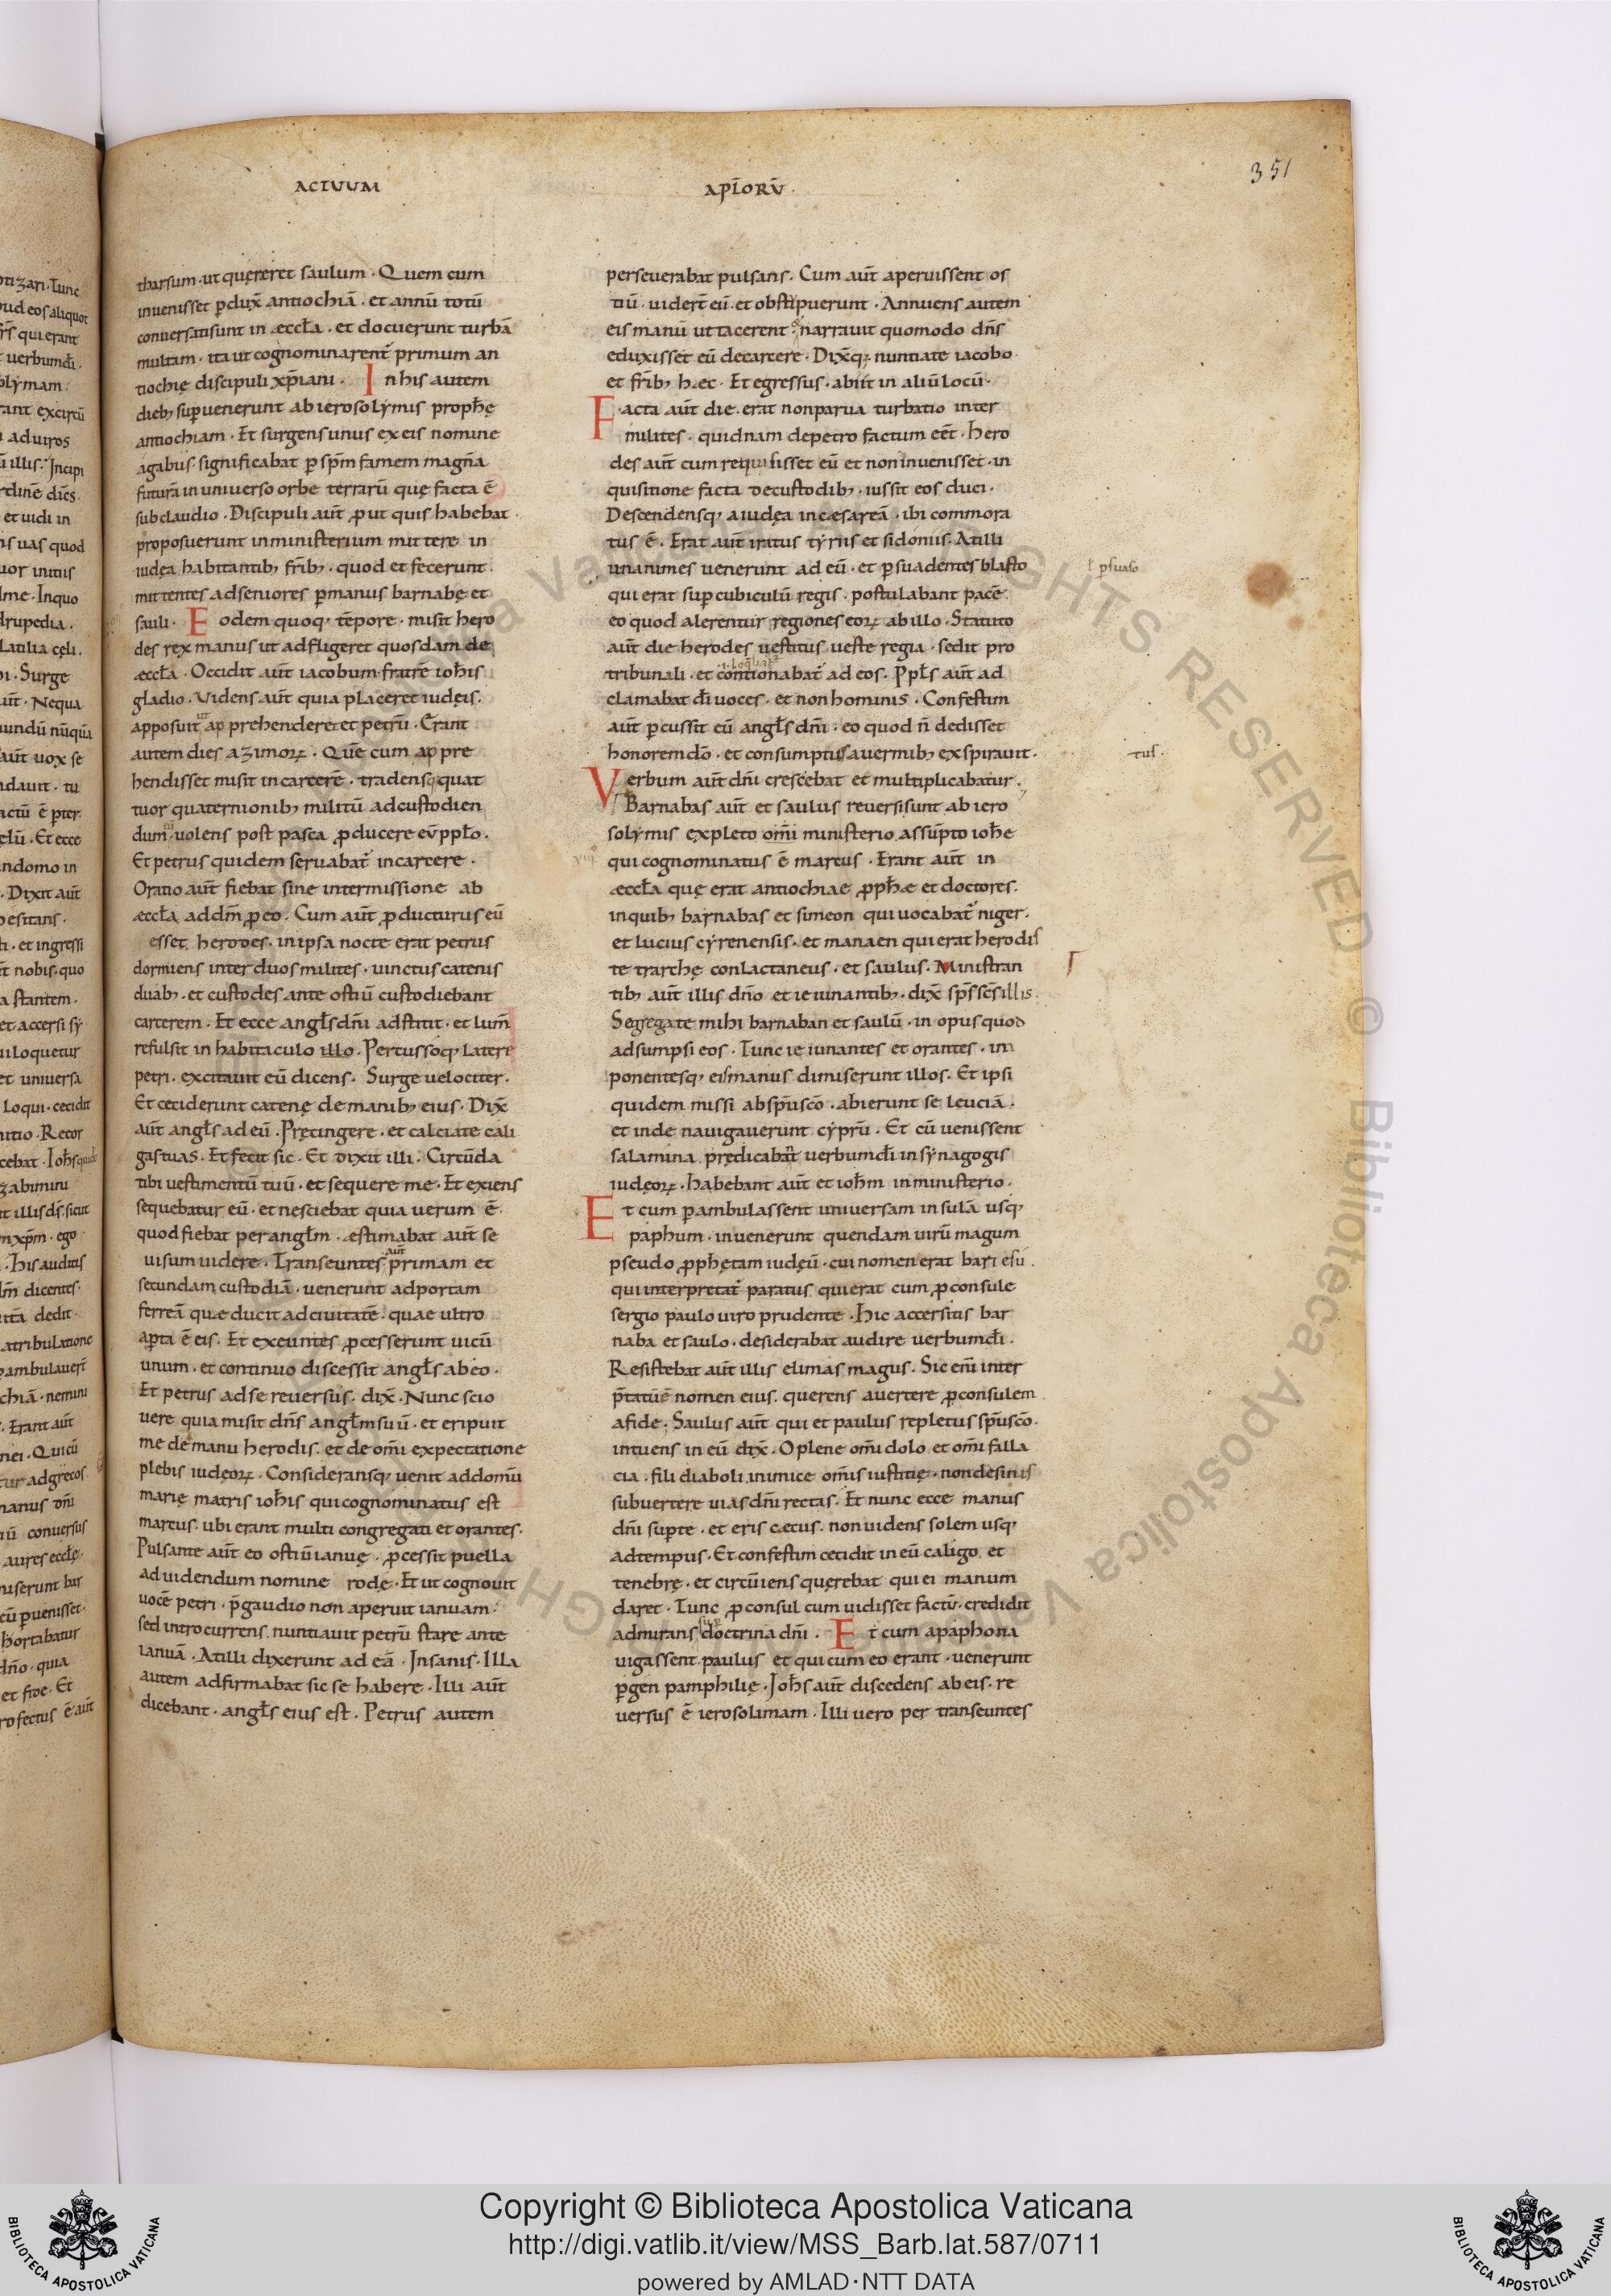 351
ACTUUM
APŁORŪ
tharsum · ut quęreret saulum · Quem cum
inuenisset p̱dux̄ antiochiā · et annū totū
conuersatisunt in æccła · et docuerunt turbā
multam · ita ut cognominarent᷑ primum an
tiochię discipuli xp̄iani · In his autem
dieb; sup̱uenerunt ab ierosolymis proph̄ę
antiochiam · Et surgens unus ex eis nomine
agabus · significabat p̱ sp̄m famem magña
futurā in uniuerso orbe terrarū quę facta ē
sub claudio · Discipuli aūt ꝓut quis habebat ·
proposuerunt in ministerium mittere in
iudęa habitantib; fr̄ib; · quod et fecerunt ·
mittentes ad seniores p̱ manus barnabę et
sauli · Eodem quoq; tēpore · misit hero
des rex manus ut adfligeret quosdam de
æccła · Occidit aūt iacobum fratrē ioħis
gladio · Uidens aūt quia placeret iudęis ·
apposuit ut app̱rehenderet et petrū · Erant
autem dies azimoꝝ · Quē cum appre
hendisset misit in carcerē · tradens quat
tuor quaternionib; militū ad custodien
dum · uolens post pasca ꝓducere eū ppło ·
Et petrus quidem seruabat᷑ in carcere ·
Oratio aūt fiebat sine intermissione ab
æccła ad dm̄ ꝓ eo · Cum aūt ꝓducturus eū
esset herodes · in ipsa nocte erat petrus
dormiens inter duos milites · uinctus catenis
duab; · et custodes ante ostiū custodiebant
carcerem · Et ecce angłs dn̄i adstitit · et lum̄
refulsit in habitaculo illo · Percussoq; latere
petri · excitauit eū dicens · Surge uelociter ·
Et ceciderunt catenę de manib; eius · Dix̄
aūt angłs ad eū · Pręcingere · et calciate cali
gas tuas · Et fecit sic · Et dixit illi · Circūda
tibi uestimentū tuū · et sequere me · Et exiens
sequebatur eū · et nesciebat quia uerum ē ·
quod fiebat per angłm · æstimabat aūt se
uisum uidere · Transeuntes aūt primam et
secundam custodiā · uenerunt ad portam
ferreā quæ ducit ad ciuitatē · quae ultro
ap̱ta ē eis · Et exeuntes ꝓcesserunt uicū
unum · et continuo discessit angłs ab eo ·
Et petrus ad se reuersus · dix̄ · Nunc scio
uere quia misit dn̄s angłm suū · et eripuit
me de manu herodis · et de om̄i expectatione
plebis iudęoꝝ · Consideransq; uenit ad domū
marię matris ioħis qui cognominatus est
marcus · ubi erant multi congregati et orantes ·
Pulsante aūt eo ostiū ianuę · ꝓcessit puella
ad uidendum nomine rodę · Et ut cognouit
uocē petri · p̄ gaudio non aperuit ianuam ·
sed intro currens nuntiauit petrū stare ante
ianuā · At illi dixerunt ad eā · Insanis · Illa
autem adfirmabat sic se habere · Illi aūt
dicebant · angłs eius est · Petrus autem
perseuerabat pulsans · Cum aūt aperuissent os
tiū · uider̄t eū · et obstipuerunt · Annuens autem
eis manū ut tacerent · narrauit quomodo dn̄s
eduxisset eū de carcere · Dix̄q; nuntiate iacobo
et fr̄ib; hæc · Et egressus · abiit in aliū locū ·
Facta aūt die · erat non parua turbatio inter
milites · quidnam de petro factum eēt · Hero
des aūt cum requisisset eū et non inuenisset · in
quisitione facta de custodib; · iussit eos duci ·
Descendensq; a iudęa in cæsareā · ibi commora
tus ē · Erat aūt iratus tyriis et sidoniis · At illi
unanimes uenerunt ad eū · et p̱suadentes blasto
ł p̱suaso
qui erat sup̱ cubiculū regis · postulabant pacē
eo quod alerentur regiones eoꝝ ab illo · Statuto
aūt die herodes uestitus ueste regia · sedit pro
tribunali · et contionabat᷑ ad eos · Ppłs aūt ad
clamabat dī uoces · et non hominis · Confestim
aūt p̱cussit eū angłs dn̄i · eo quod n̄ dedisset
honorem dō · et consumptus a uermib; exspirauit ·
tus ·
Verbum aūt dn̄i crescebat et multiplicabatur ·
Barnabas aūt et saulus reuersi sunt ab iero
solymis expleto om̄i ministerio assūpto ioħe
qui cognominatus ē marcus · Erant aūt in
æccła quę erat antiochiae ꝓpħæ et doctores ·
in quib; barnabas et simeon qui uocabat᷑ niger ·
et lucius cyrenensis · et manaen qui erat herodis
tetrarchę conlactaneus · et saulus · Ministran
tib; aūt illis dn̄o et ieiunantib; · dix̄ sp̄s sc̄s illis ·
Segregate mihi barnaban et saulū · in opus quod
adsumpsi eos · Tunc ieiunantes et orantes · im
ponentesq; eis manus dimiserunt illos · Et ipsi
quidem missi ab sp̄u sc̄o · abierunt seleuciā ·
et inde nauigauerunt cyprū · Et cū uenissent
salamina · prędicabañt uerbum dī in synagogis
iudęoꝝ · habebant aūt et ioħm in ministerio ·
Et cum p̱ambulassent uniuersam insulā usq;
paphum · inuenerunt quendam uirū magum
pseudo ꝓphętam iudęū · cui nomen erat bariesu ·
qui interpretat᷑ paratus qui erat cum ꝓconsule
sergio paulo uiro prudente · Hic accersitis bar
naba et saulo · desiderabat audire uerbum dī ·
Resistebat aūt illis elimas magus · Sic eni᷑ inter
p̄tatū ē nomen eius · querens auertere ꝓconsulem
a fide · Saulus aūt qui et paulus repletus sp̄u sc̄o ·
intuens in eū dix̄ · O plene om̄i dolo et om̄i falla
cia · fili diaboli inimice om̄is iustitię · non desinis
subuertere uias dn̄i rectas · Et nunc ecce manus
dn̄i sup̱ te · et eris cæcus · non uidens solem usq;
ad tempus · Et confestim cecidit in eū caligo et
tenebrę · et circūiens quęrebat qui ei manum
daret · Tunc ꝓconsul cum uidisset factū · credidit
admirans sup̱ doctrina dn̄i · Et cum a papho na
uigassent paulus et qui cum eo erant · uenerunt
p̱gen pamphilię · Joħs aūt discedens ab eis · re
uersus ē ierosolimam · Illi uero per transeuntes
Copyright © Biblioteca Apostolica Vaticana
http://digi.vatlib.it/view/MSS_Barb.lat.587/0711
powered by AMLAD·NTT DATA